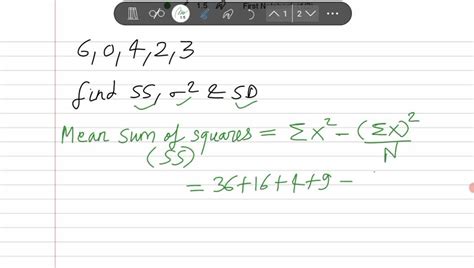 1.5 First N
1
6, 0, 4, 2, 3
find SS, σ² & SD
Mean sum of squares = Σx² - (Σx)²/N
(SS)
= 36+16+4+9 -